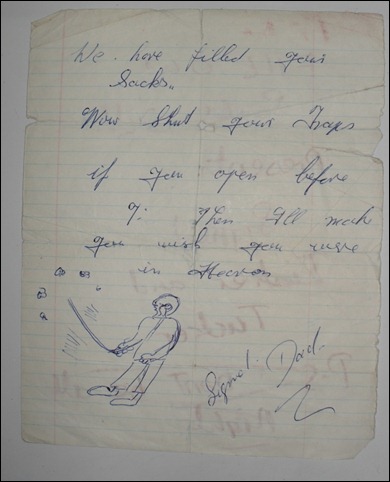 We have filled your
Sacks,,
Now Shut your Traps
if you open before
7: then I'll make
you wish you were
in Heaven
Signed. Dad.